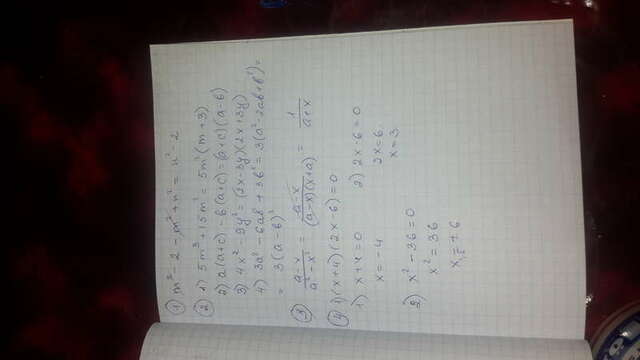 ① m² - 2 - m² + n² = n² - 2
② 1) 5m³ + 15m² = 5m²(m + 3)
2) a(a+c) - в(a+c) = (a+c)(a-в)
3) 4x² - 9y² = (2x-3y)(2x+3y)
4) 3a² - 6aв + 3в² = 3(a² - 2aв + в²) =
= 3(a-в)²
③ a-x / a² - x² = a-x / (a-x)(x+a) = 1 / a+x
④ 1) (x+4)(2x-6) = 0
1) x+4 = 0 2) 2x-6 = 0
x = -4 2x = 6
x = 3
2) x² - 36 = 0
x² = 36
x = ±6